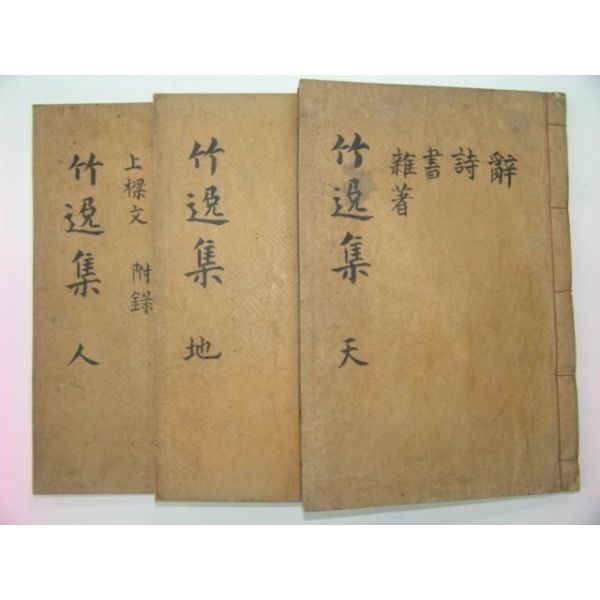 辭
詩
書
雜著
竹逸集 天
竹逸集 地
上樑文 附錄
竹逸集 人